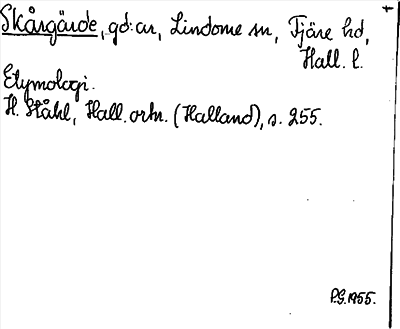 Skårgärde, gd:ar, Lindome sn, Fjäre hd,
Hall. l.
Etymologi.
H. Ståhl, Hall. ortn. (Halland), s. 255.
P.G. 1955.